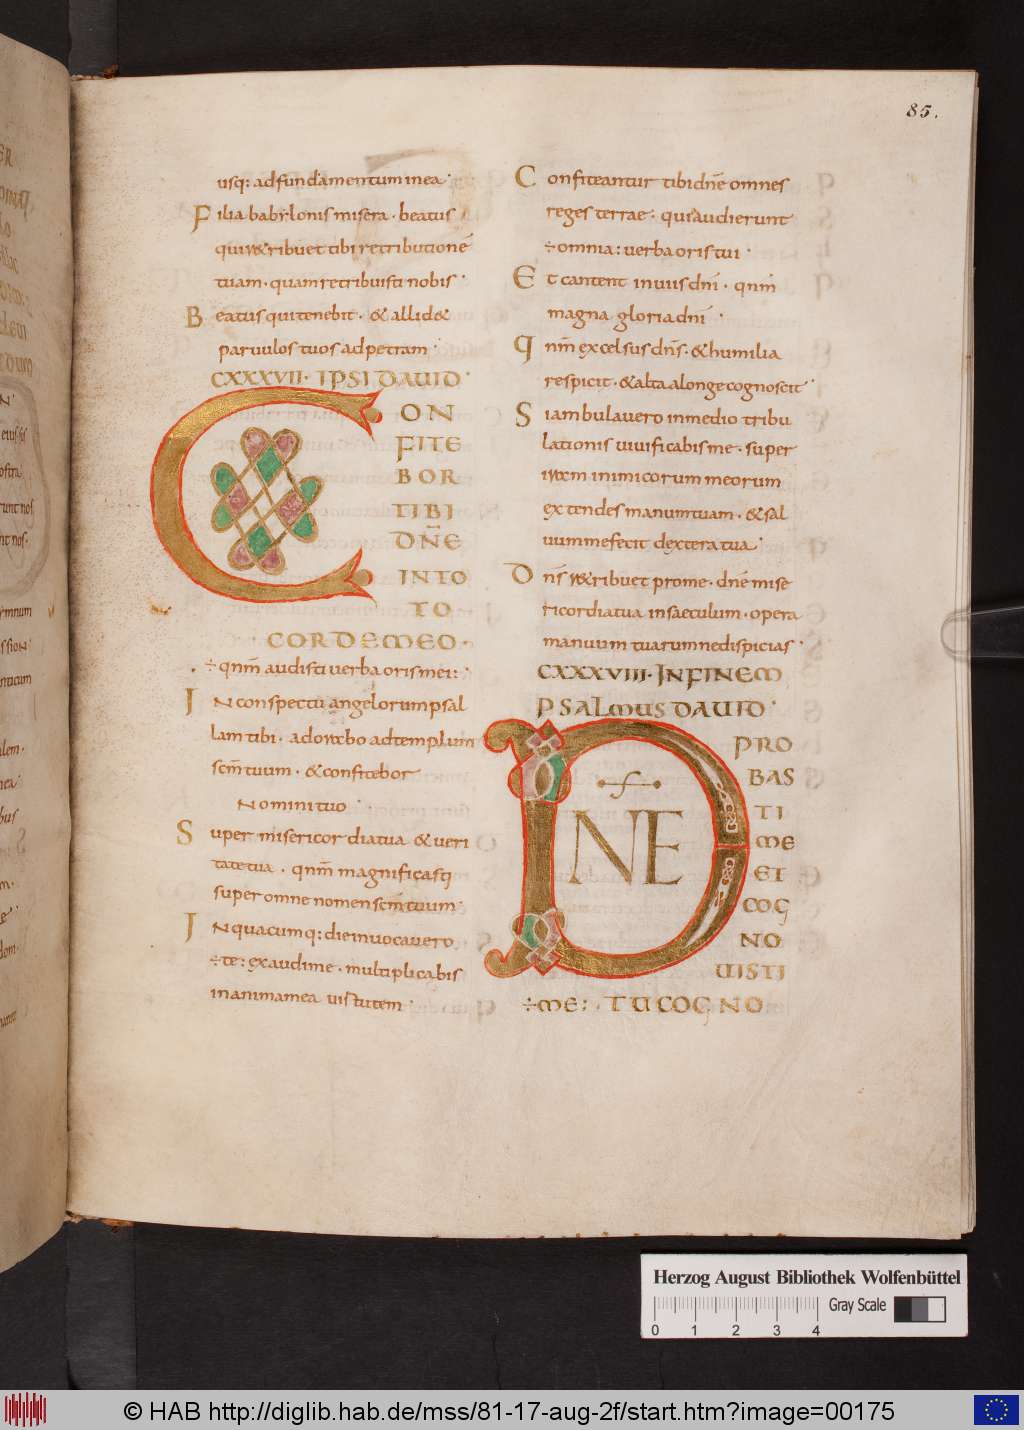 85.
usq: adfundamentum inea·
Filia babilonis misera· beatus
qui r&ribuet tibi retributionē
tuam· quam retribuisti nobis·
Beatus qui tenebit· & allid&
paruulos tuos ad petram·
CXXXVII· IPSI DAUID·
CON
FITE
BOR
TIBI
DÑE
IN TO
TO
CORDE MEO·
÷qnm̄ audisti uerba oris mei:·
IN conspectu angelorum psal
lam tibi· adorabo ad templum
scm̄ tuum· & confitebor
Nomini tuo·
Super misericordia tua & ueri
tate tua· qnm̄ magnificasti
super omne nomen scm̄ tuum·
IN quacumq: die inuocauero
÷te: exaudi me· multiplicabis
in anima mea uirtutem·
Confiteantur tibi dñe omnes
reges terrae· qui audierunt
÷omnia: uerba oris tui·
Et cantent in uiis dnī· qnm̄
magna gloria dnī·
Qnm̄ excelsus dñs· & humilia
respicit· & alta a longe cognoscit·
Si ambulauero in medio tribu
lationis uiuificabis me· super
iram inimicorum meorum
extendes manum tuam· & sal
uum me fecit dextera tua·
Dñs r&ribuet pro me· dñe mise
ricordia tua in saeculum· opera
manuum tuarum ne dispicias·
CXXXVIII· IN FINEM
PSALMUS DAUID·
DNE
PRO
BAS
TI
ME
ET
COG
NO
UISTI
÷ME:· TU COGNO
Herzog August Bibliothek Wolfenbüttel
Gray Scale
0 1 2 3 4
© HAB http://diglib.hab.de/mss/81-17-aug-2f/start.htm?image=00175